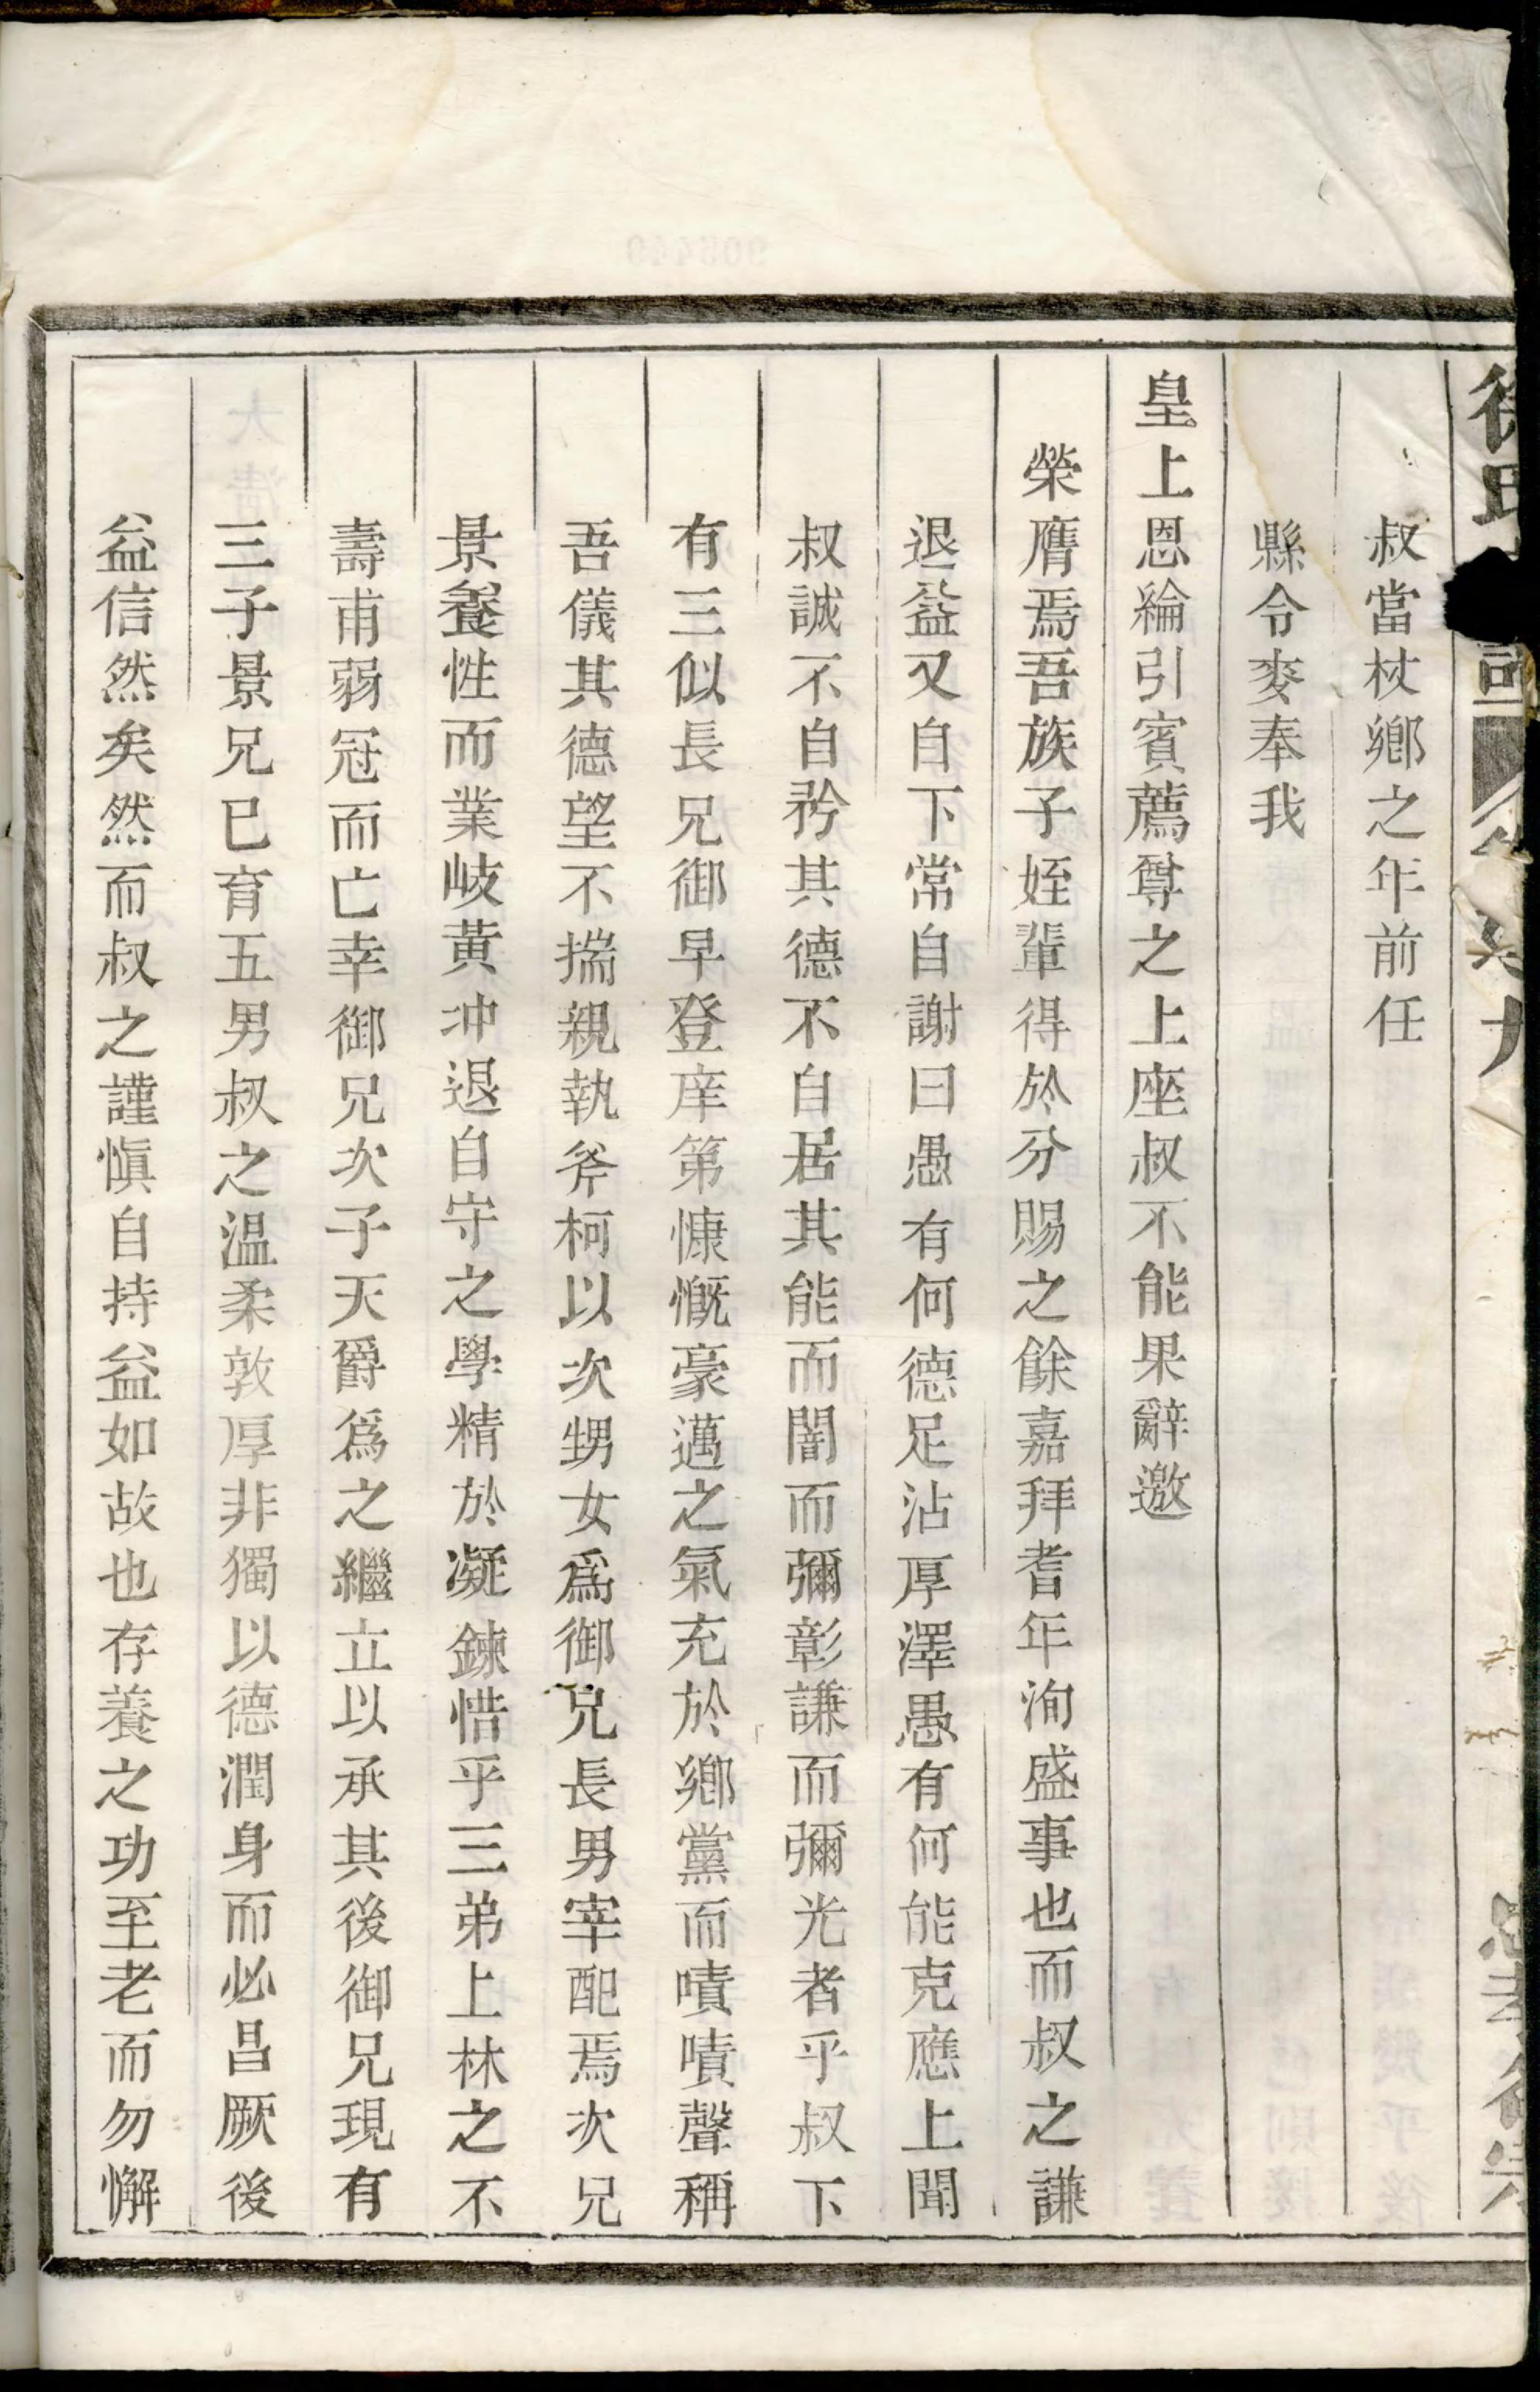 叔當杖鄉之年前任
縣令麥奉我
皇上恩綸引賓薦尊之上座叔不能果辭邀
榮膺焉吾族子姪輩得於分賜之餘嘉拜耆年洵盛事也而叔之謙
退益又自下常自謝曰愚有何德足沾厚澤愚有何能克應上聞
叔誠不自矜其德不自居其能而闇而彌彰謙而彌光者乎叔下
有三似長兄御早登庠第慷慨豪邁之氣充於鄉黨而嘖嘖聲稱
吾儀其德望不揣親執斧柯以次甥女爲御兄長男宰配焉次兄
景養性而業岐黃冲退自守之學精於凝鍊惜乎三弟上林之不
壽甫弱冠而亡幸御兄次子天爵爲之繼立以承其後御兄現有
三子景兄已育五男叔之温柔敦厚非獨以德潤身而必昌厥後
益信然矣然而叔之謹愼自持益如故也存養之功至老而勿懈